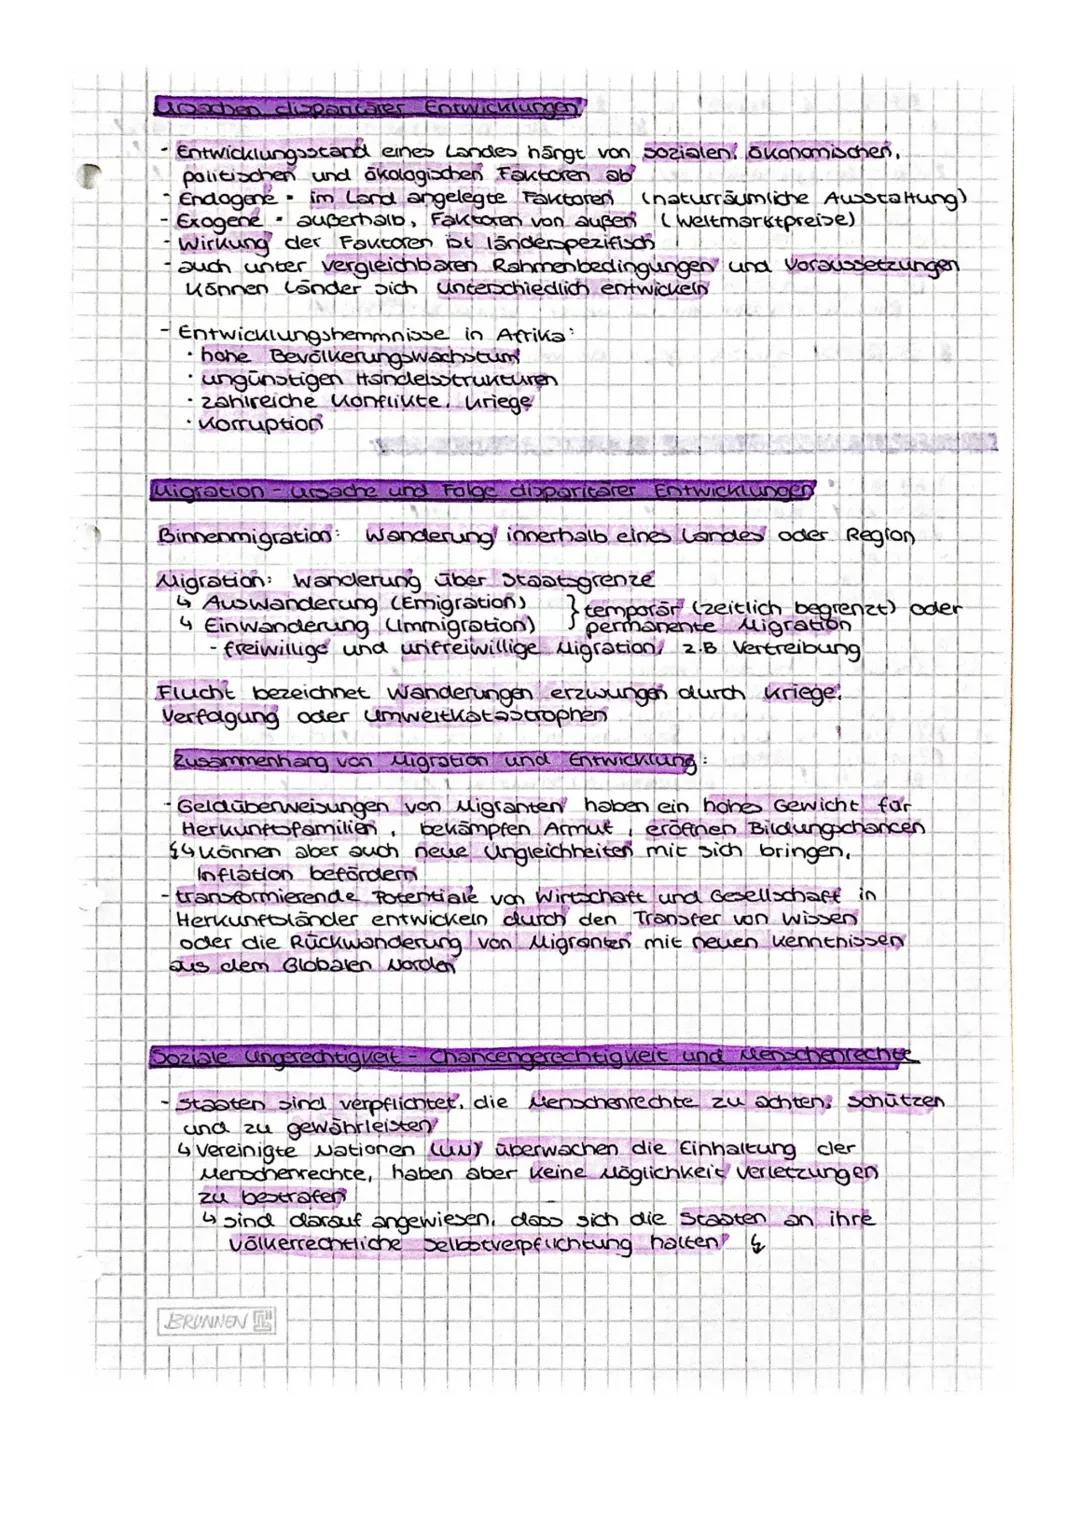 Ursachen disparitärer Entwicklungen
- Entwicklungsstand eines Landes hängt von sozialen, ökonomischen,
politischen und ökologischen Faktoren ab
- Endogene = im Land angelegte Faktoren (naturräumliche Ausstattung)
- Exogene = außerhalb, Faktoren von außen (Weltmarktpreise)
- Wirkung der Faktoren ist länderspezifisch
- auch unter vergleichbaren Rahmenbedingungen und Voraussetzungen
können Länder sich unterschiedlich entwickeln
- Entwicklungshemmnisse in Afrika:
· hohe Bevölkerungswachstum
· ungünstigen Handelsstrukturen
· zahlreiche Konflikte, Kriege
· Korruption
Migration - Ursache und Folge disparitärer Entwicklungen
Binnenmigration: Wanderung innerhalb eines Landes oder Region
Migration: Wanderung über Staatsgrenze
↳ Auswanderung (Emigration) } temporär (zeitlich begrenzt) oder
↳ Einwanderung (Immigration) } permanente Migration
- freiwillige und unfreiwillige Migration, z.B Vertreibung
Flucht bezeichnet Wanderungen erzwungen durch Kriege,
Verfolgung oder Umweltkatastrophen
Zusammenhang von Migration und Entwicklung:
- Geldüberweisungen von Migranten haben ein hohes Gewicht für
Herkunftsfamilien, bekämpfen Armut, eröffnen Bildungschancen
↯↳ können aber auch neue Ungleichheiten mit sich bringen,
Inflation befördern
- transformierende Potentiale von Wirtschaft und Gesellschaft in
Herkunftsländer entwickeln durch den Transfer von Wissen
oder die Rückwanderung von Migranten mit neuen Kenntnissen
aus dem Globalen Norden
Soziale Ungerechtigkeit - Chancengerechtigkeit und Menschenrechte
- Staaten sind verpflichtet, die Menschenrechte zu achten, schützen
und zu gewährleisten
↳ Vereinigte Nationen (UN) überwachen die Einhaltung der
Menschenrechte, haben aber keine Möglichkeit Verletzungen
zu bestrafen
↳ sind darauf angewiesen, dass sich die Staaten an ihre
völkerrechtliche Selbstverpflichtung halten ↯
BRUNNEN